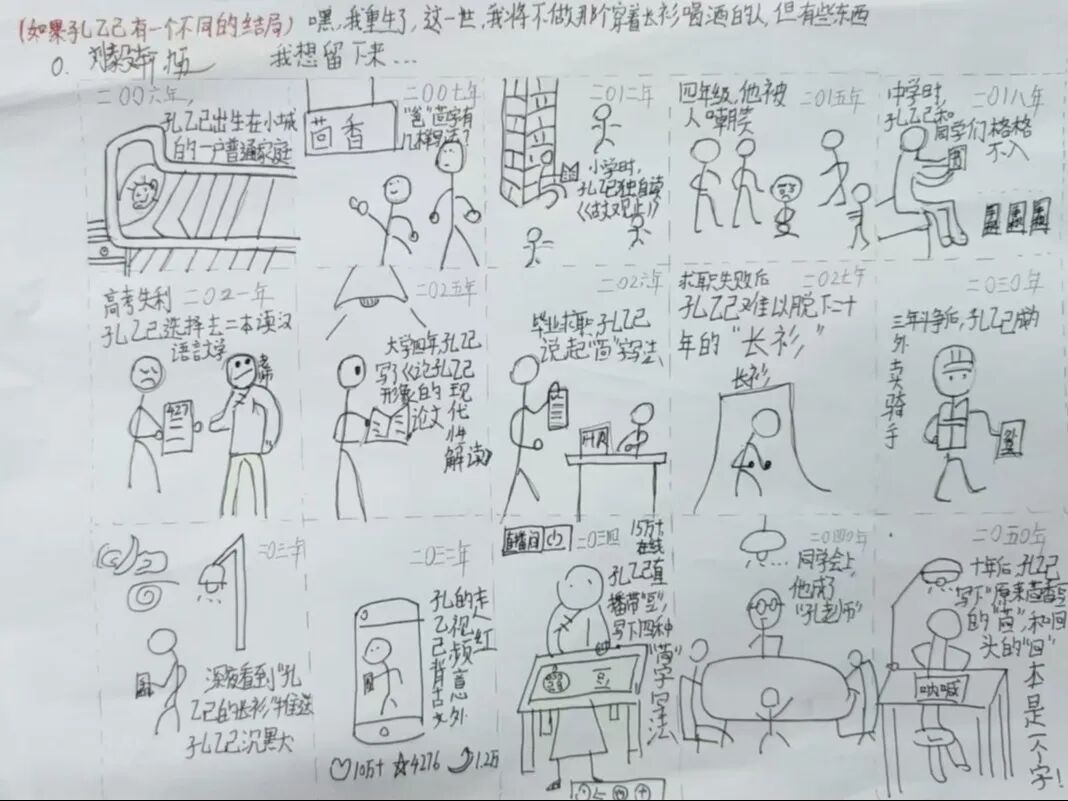 (如果孔乙己有一个不同的结局) 嘿,我重生了,这一世,我将不做那个穿着长衫喝酒的人,但有些东西
我想留下来…
二〇〇六年,
孔乙己出生在小城
的一户普通家庭
二〇〇七年
茴香
"爸"茴字有
几样写法?
二〇一二年
小学时,
孔乙己独自读
《古文观止》
二〇一五年
四年级,他被
人嘲笑
二〇一八年
中学时,
孔乙己和
同学们格格
不入
高考失利 二〇二一年
孔乙己选择去二本读汉
语言文学
427
二〇二五年
大学四年,孔乙己
写了《论孔乙己
形象的现代
解读》
论文
二〇二六年
毕业求职,孔乙己
说起"茴"字写法
HR
求职失败后 二〇二七年
孔乙己难以脱下二十
年的"长衫"
长衫
二〇三〇年
三年斗争后,孔乙己成为
外卖骑手
二〇三一年
深夜看到"孔
乙己的长衫"推送
孔乙己沉默
二〇三二年
孔乙己背古文
的视频意外
走红
10万+ 4276 1.2万
直播间
二〇三四
15万+
在线
孔乙己直
播带"豆",
写下四种
"茴"字写法
二〇四〇年
同学会上,
他成了
"孔老师"
二〇五〇年
十年后,孔乙己
写下"原来茴香豆
的"茴",和回
头的"回"
本是一个字!
呐喊